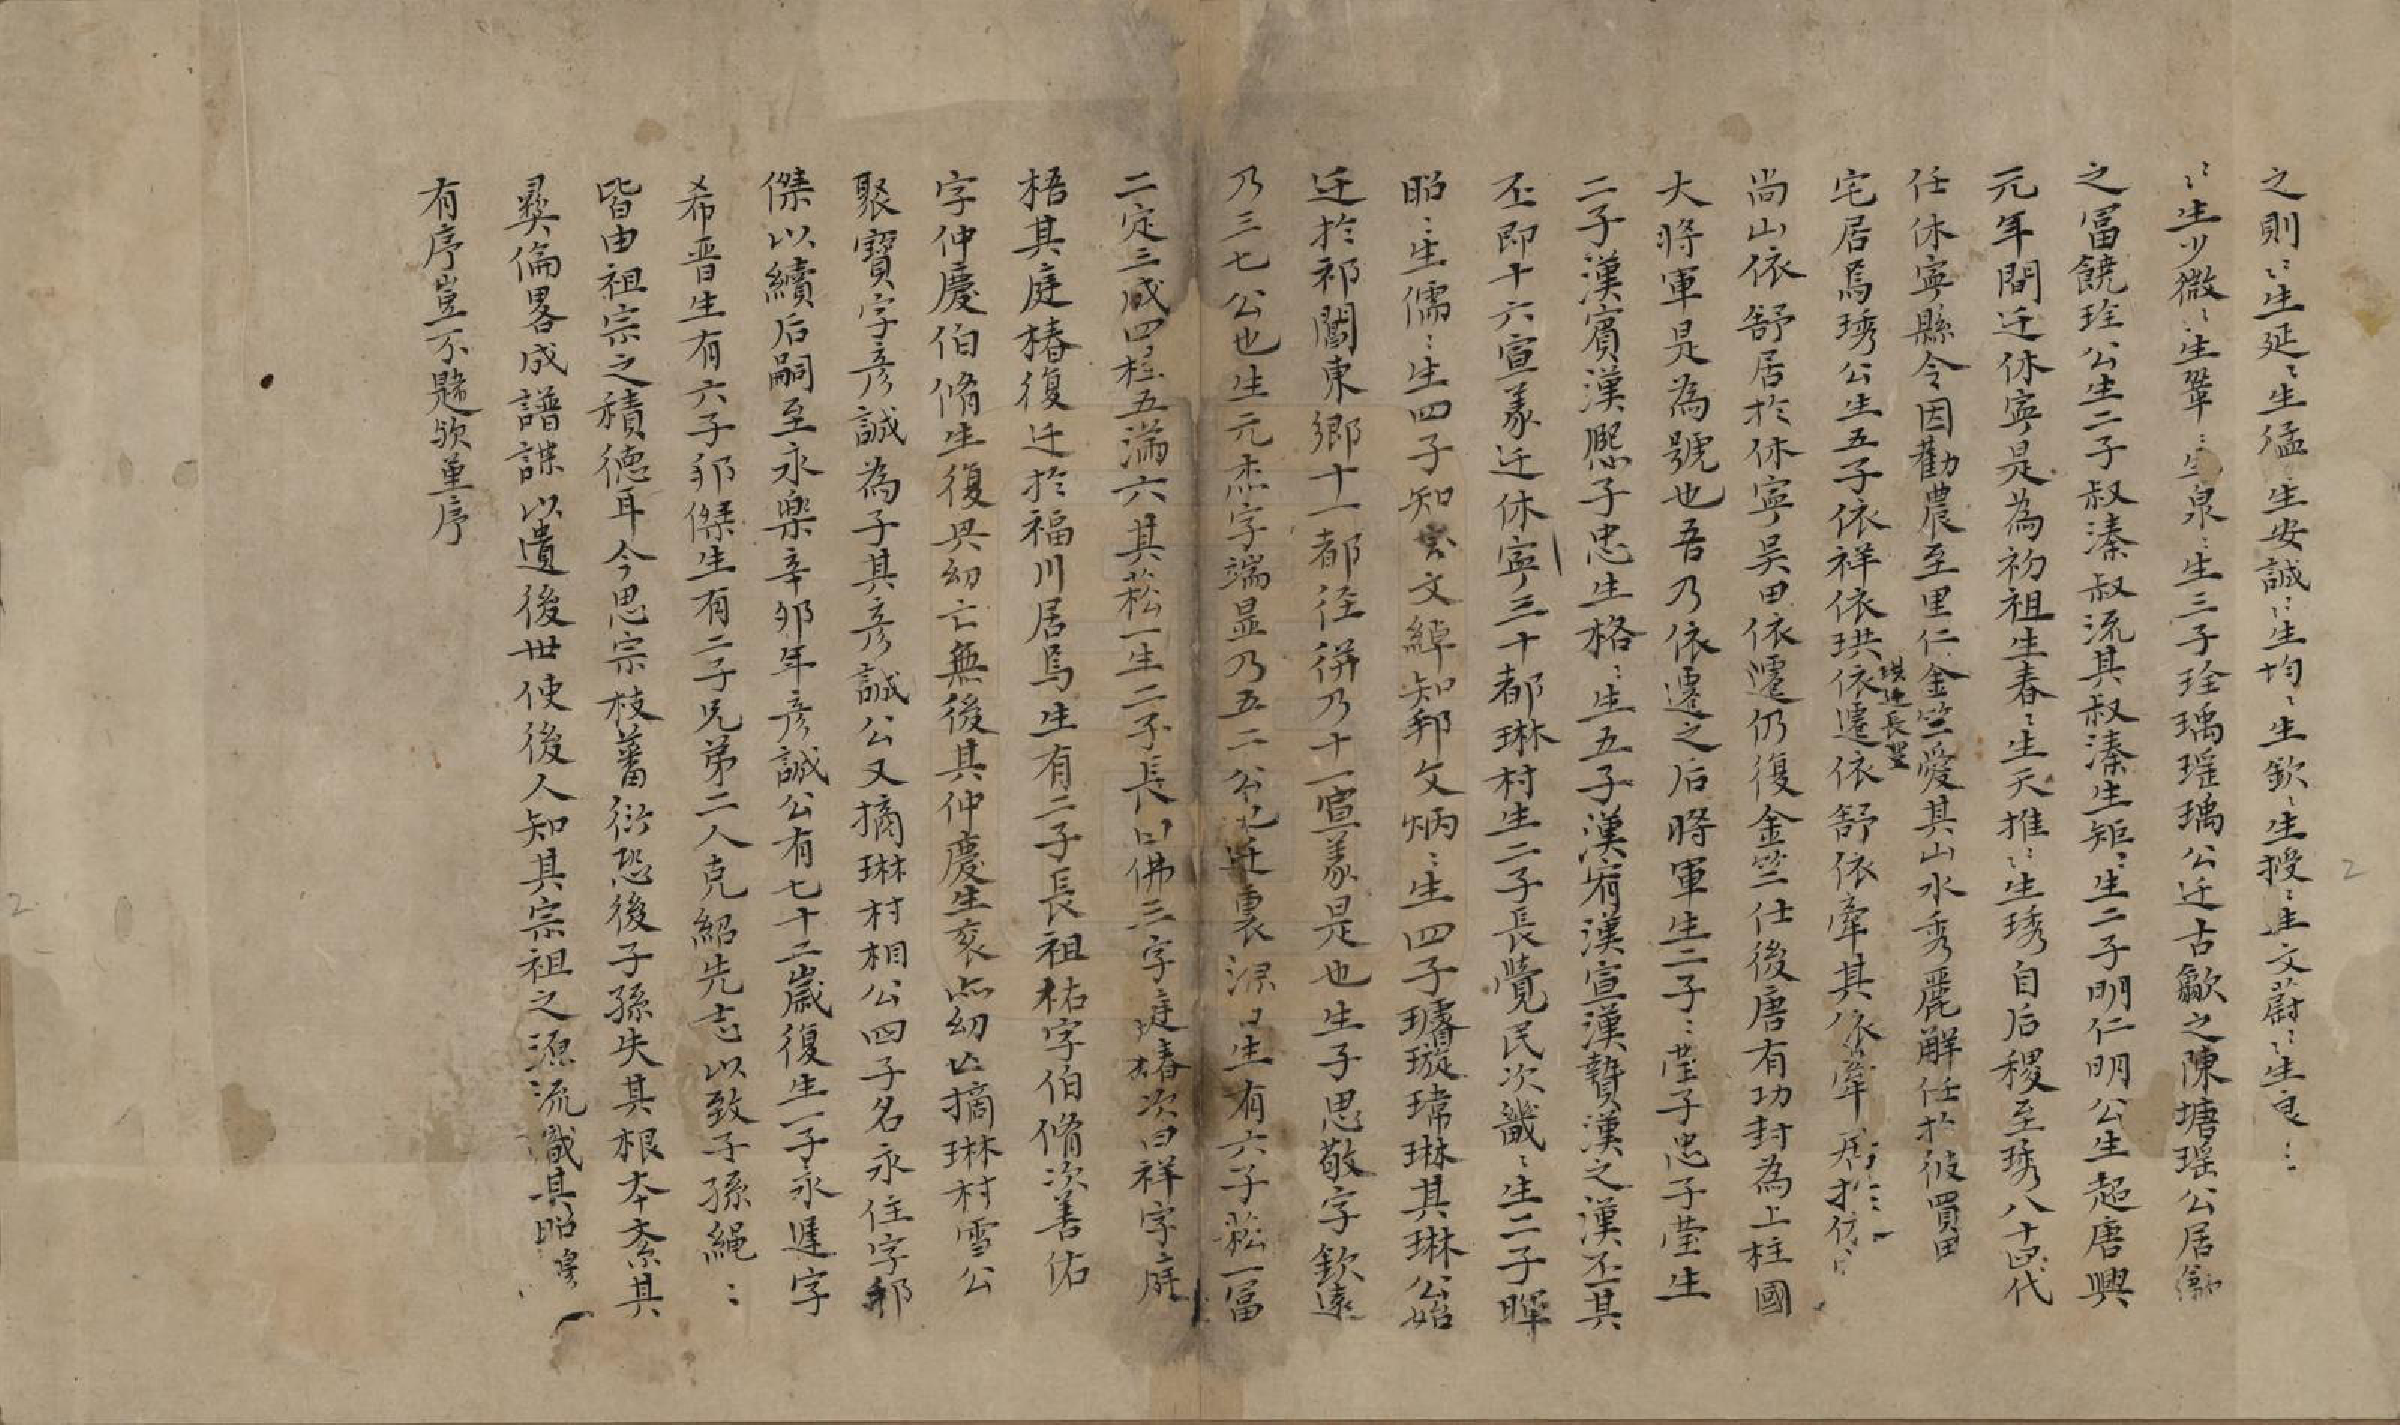 之則〻生延〻生猛〻生安誠〻生均〻生欽〻生授〻生文蔚〻生良〻
〻生少微〻生鞏〻生泉〻生三子珤瑀瑶瑀公迁古歙之陳塘瑶公居
之富饒珤公生二子叔溱叔流其叔溱生矩〻生二子明仁明公生起唐興
元年間迁休寧是為初祖生春〻生天推〻生琇自后稷至琇八十四代
任休寧縣令因勸農至里仁金竺愛其山水秀麗觧任扵彼買田
琪迁長豐
宅居焉琇公生五子依祥依珙依遷依舒依牽其依牽居扵
尚山依舒居扵休寧吴田依遷仍復金竺仕後唐有功封為上柱國
大將軍是為號也吾乃依遷之后將軍生二子〻瑩子忠子瑩生
二子漢賓漢熈子忠生格〻生五子漢宥漢宣漢贄漢之漢丕其
丕即十六宣義迁休寧三十都琳村生二子長覺民次畿〻生二子暉
昭〻生儒〻生四子知文綽知邦文炳〻生四子璿璇瑋琳其琳公始
迁扵祁閶東郷十一都徑徘乃十一宣義是也生子思敬字欽遠
乃三七公也生元杰字端显乃五二公也迁裏源生有六子菘一富
二定三成四桂五滿六其菘一生二子長曰佛三字庭椿次曰祥字庭
梧其庭椿復迁扵福川居焉生有二子長祖祐字伯脩次善佑
字仲慶伯脩生復興幼亡無後其仲慶生亥点幼亡摘琳村雪公
聚寳字彦誠為子其彦誠公又摘琳村相公四子名永住字邦
傑以續后嗣至永樂辛夘年彦誠公有七十二歳復生一子永遲字
希晋生有六子邦傑生有二子兄弟二人克紹先志以致子孫繩〻
皆由祖宗之積德耳今思宗枝蕃衍恐後子孫失其根本紊其
彛倫畧成譜諜以遺後世使後人知其宗祖之源流識其昭穆
有序豈不韙歟堇序
2
2